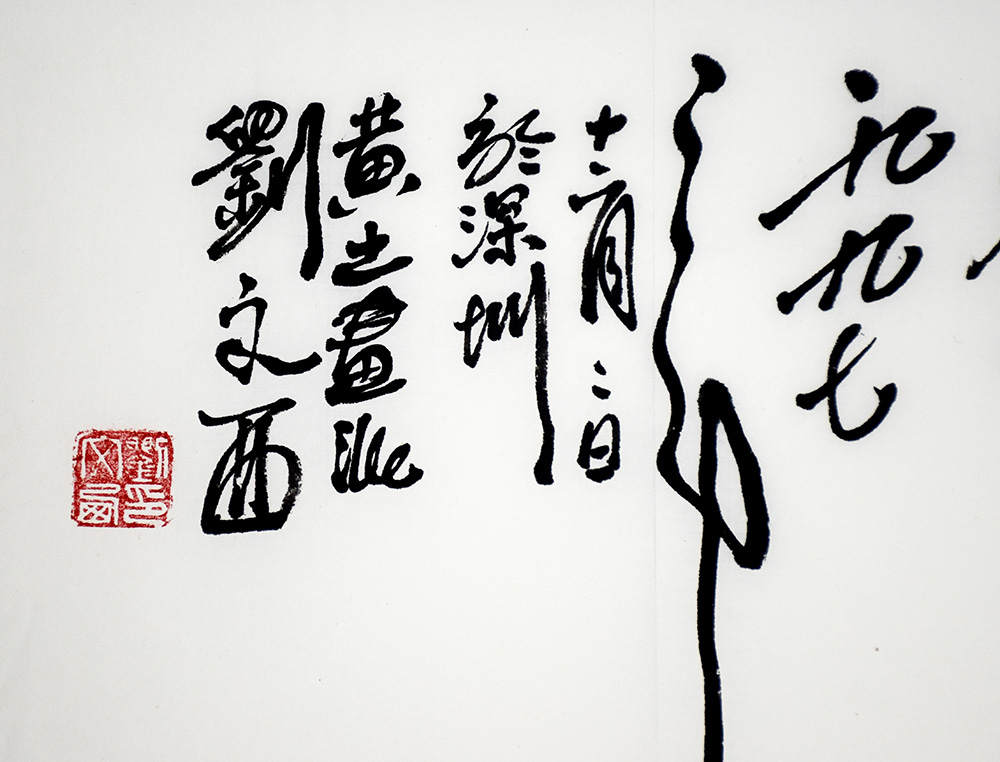 一九九七
年
十二月二日
於深圳
黄土畫派
劉文西
劉印文西